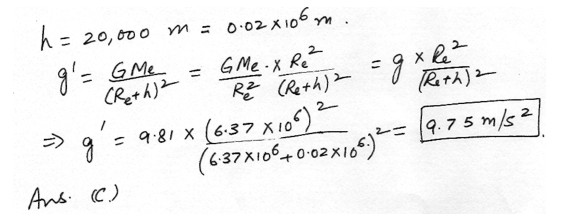 h = 20,000 m = 0.02×10⁶ m.
g' = GMe/(Re+h)² = GMe/Re² · × Re²/(Re+h)² = g × Re²/(Re+h)²
⇒ g' = 9.81 × (6.37 × 10⁶)²/(6.37×10⁶ + 0.02×10⁶.)² = 9.75 m/s².
Ans. (C.)